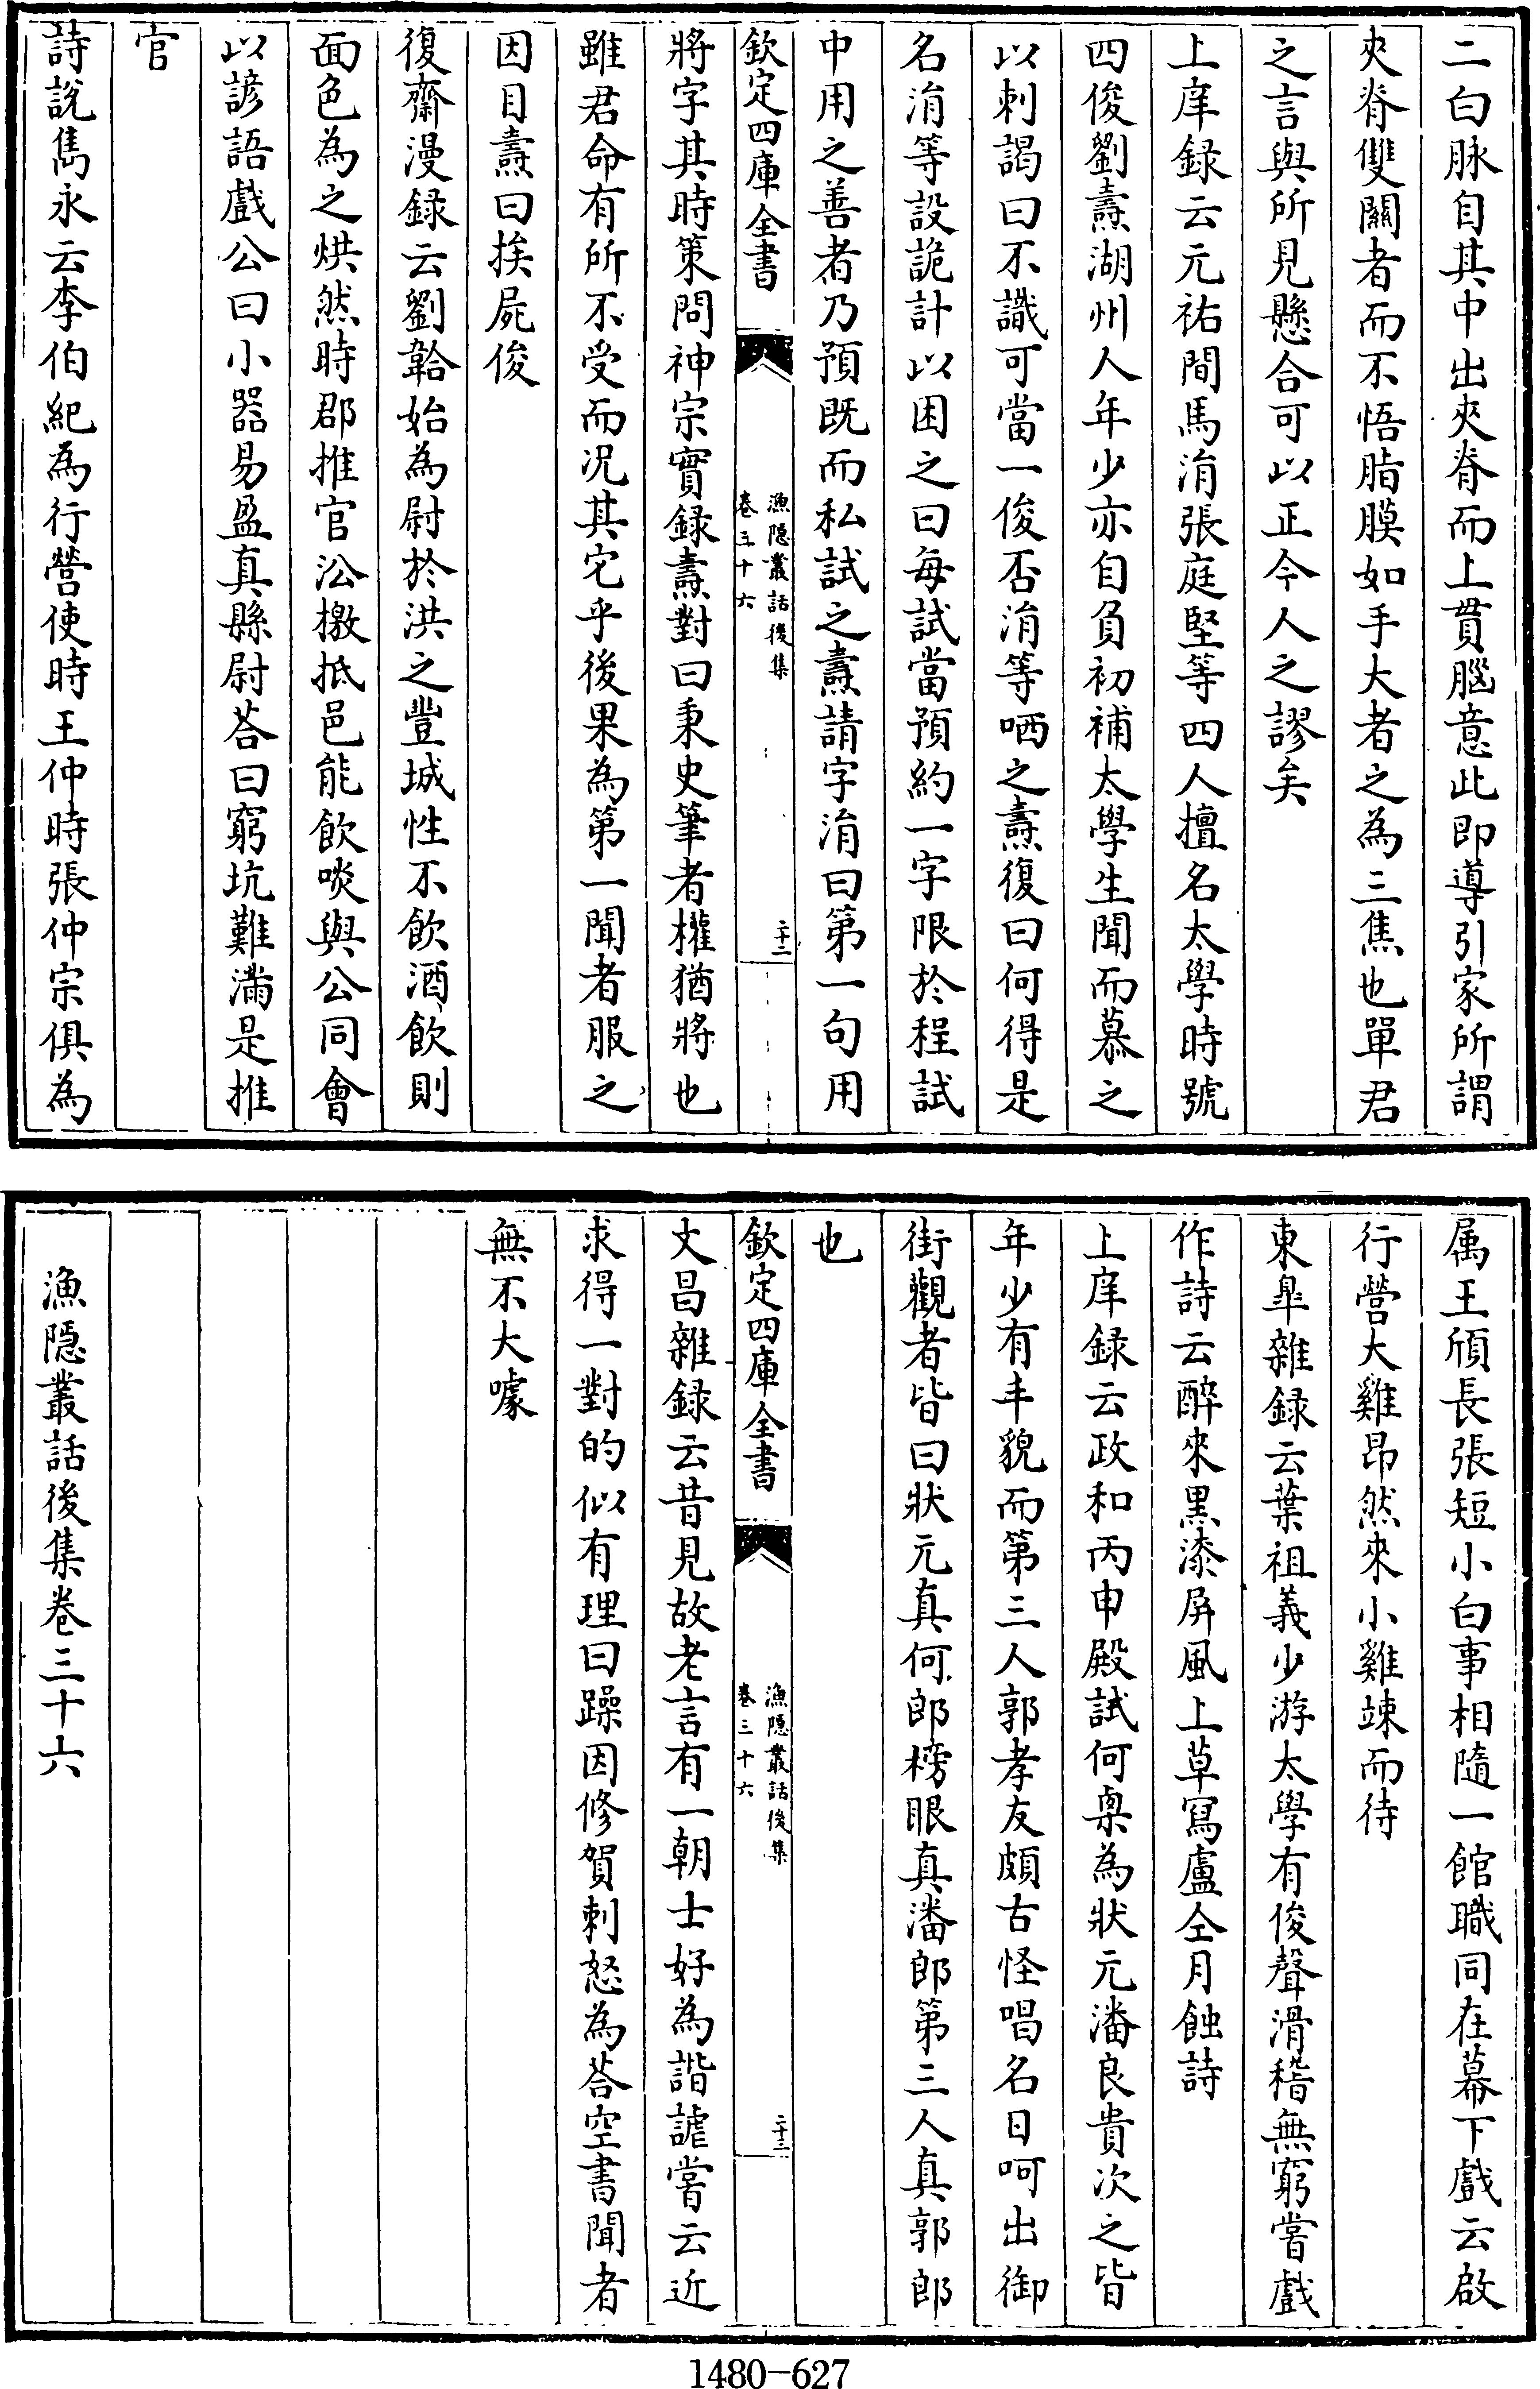 二白脉自其中出夾脊而上貫腦意此即導引家所謂
夾脊雙關者而不悟脂膜如手大者之為三焦也單君
之言與所見懸合可以正今人之謬矣
上庠録云元祐間馬涓張庭堅等四人擅名太學時號
四俊劉燾湖州人年少亦自負初補太學生聞而慕之
以刺謁曰不識可當一俊否涓等哂之燾復曰何得是
名涓等設詭計以困之曰每試當預約一字限於程試
中用之善者乃預既而私試之燾請字涓曰第一句用
欽定四庫全書
漁隱叢話後集
卷三十六
二十二
將字其時策問神宗實録燾對曰秉史筆者權猶將也
雖君命有所不受而况其它乎後果為第一聞者服之
因目燾曰挨屍俊
復齋漫録云劉韐始為尉於洪之豐城性不飲酒飲則
面色為之烘然時郡推官沿檄抵邑能飲啖與公同會
以諺語戲公曰小器易盈真縣尉荅曰窮坑難滿是推
官
詩説雋永云李伯紀為行營使時王仲時張仲宗俱為
属王頎長張短小白事相隨一館職同在幕下戲云啟
行營大雞昂然來小雞竦而待
東臯雜録云葉祖義少游太學有俊聲滑稽無窮嘗戲
作詩云醉來黑漆屏風上草寫盧仝月蝕詩
上庠録云政和丙申殿試何㮚為狀元潘良貴次之皆
年少有丰貌而第三人郭孝友頗古怪唱名日呵出御
街觀者皆曰狀元真何郎榜眼真潘郎第三人真郭郎
也
欽定四庫全書
漁隱叢話後集
卷三十六
二十三
文昌雜録云昔見故老言有一朝士好為諧謔嘗云近
求得一對的似有理曰躁因修賀刺怒為荅空書聞者
無不大噱
漁隱叢話後集卷三十六
1480-627